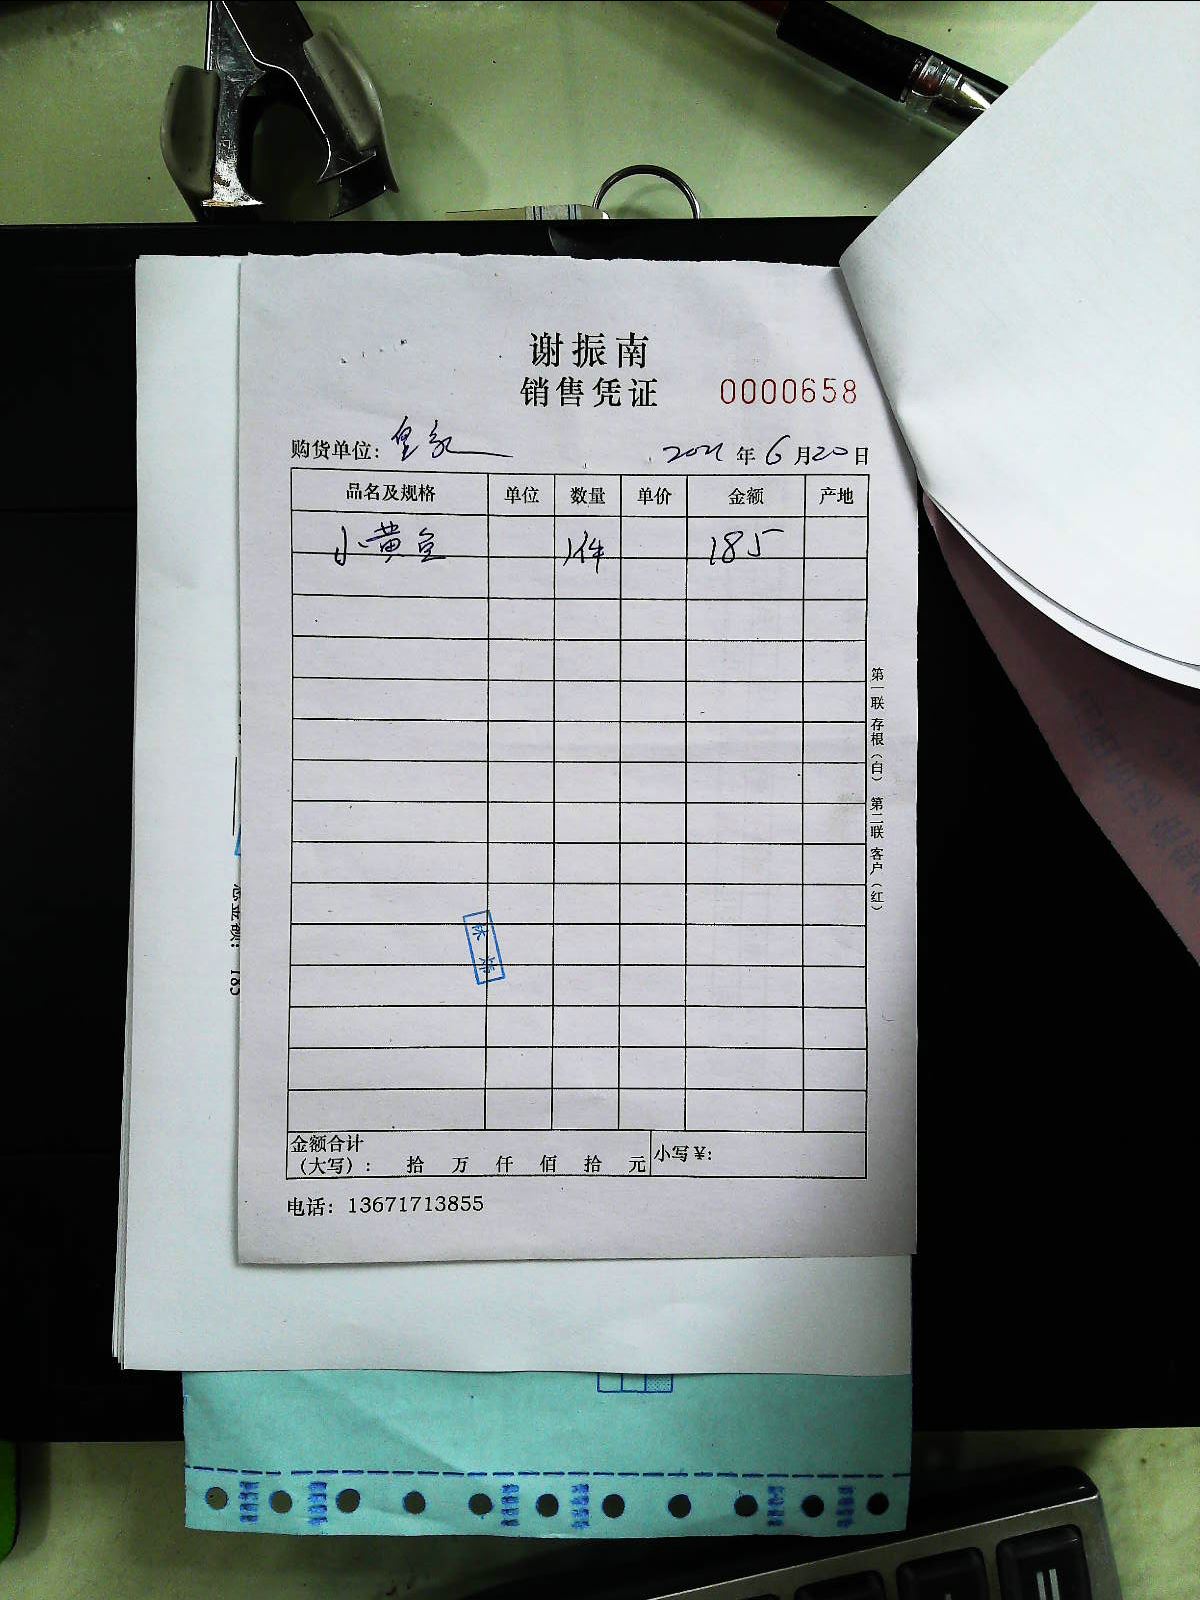 谢振南
销售凭证 0000658
购货单位: 皇家 2021年6月20日
品名及规格 单位 数量 单价 金额 产地
小黄鱼 1件 185
第一联 存根（白） 第二联 客户（红）
金额合计
（大写）: 拾 万 仟 佰 拾 元 小写¥:
电话: 13671713855
总金额: 185